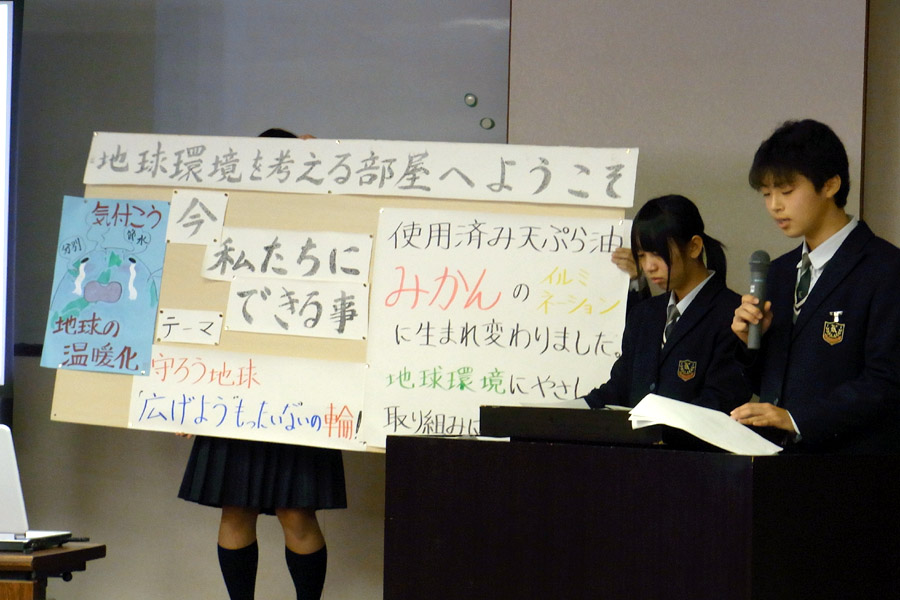 地球環境を考える部屋へようこそ
気付こう
分別
節水
地球の
温暖化
今
私たちに
できる事
テーマ
守ろう地球
「広げよう"もったいない"の輪!
使用済み天ぷら油
みかんのイルミ
ネーション
に生まれ変わりました。
地球環境にやさし
取り組みに